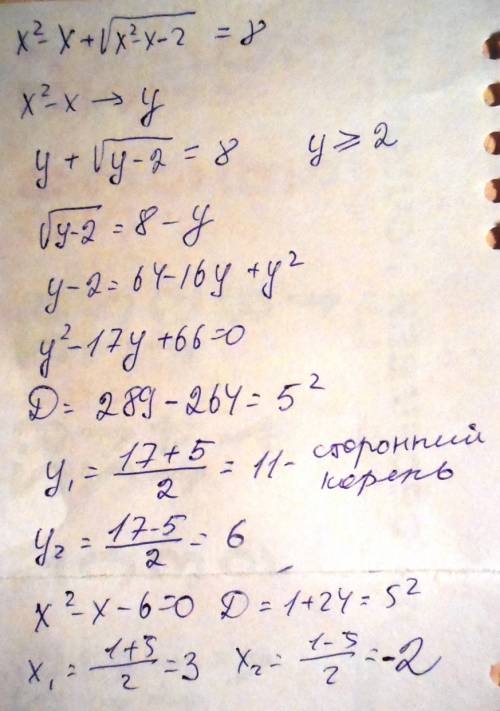 x² - x + √(x² - x - 2) = 8
x² - x → y
y + √(y - 2) = 8    y ⩾ 2
√(y - 2) = 8 - y
y - 2 = 64 - 16y + y²
y² - 17y + 66 = 0
D = 289 - 264 = 5²
y₁ = (17 + 5)/2 = 11 - сторонний корень
y₂ = (17 - 5)/2 = 6
x² - x - 6 = 0    D = 1 + 24 = 5²
x₁ = (1 + 5)/2 = 3    x₂ = (1 - 5)/2 = -2